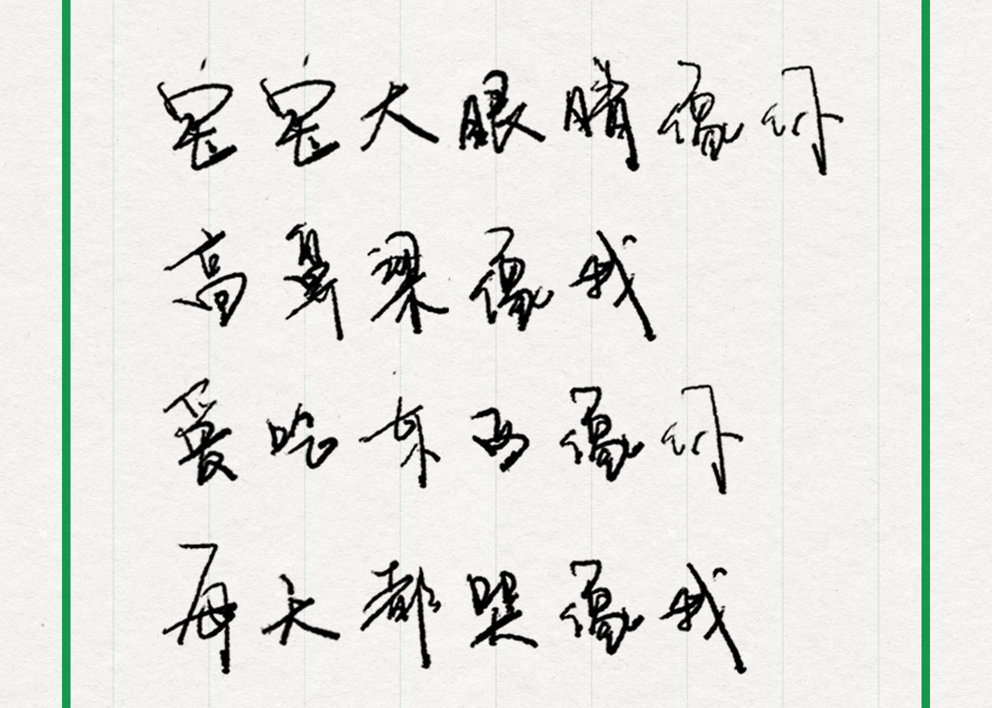 宝宝大眼睛像你
高鼻梁像我
爱吃东西像你
每天都哭像我